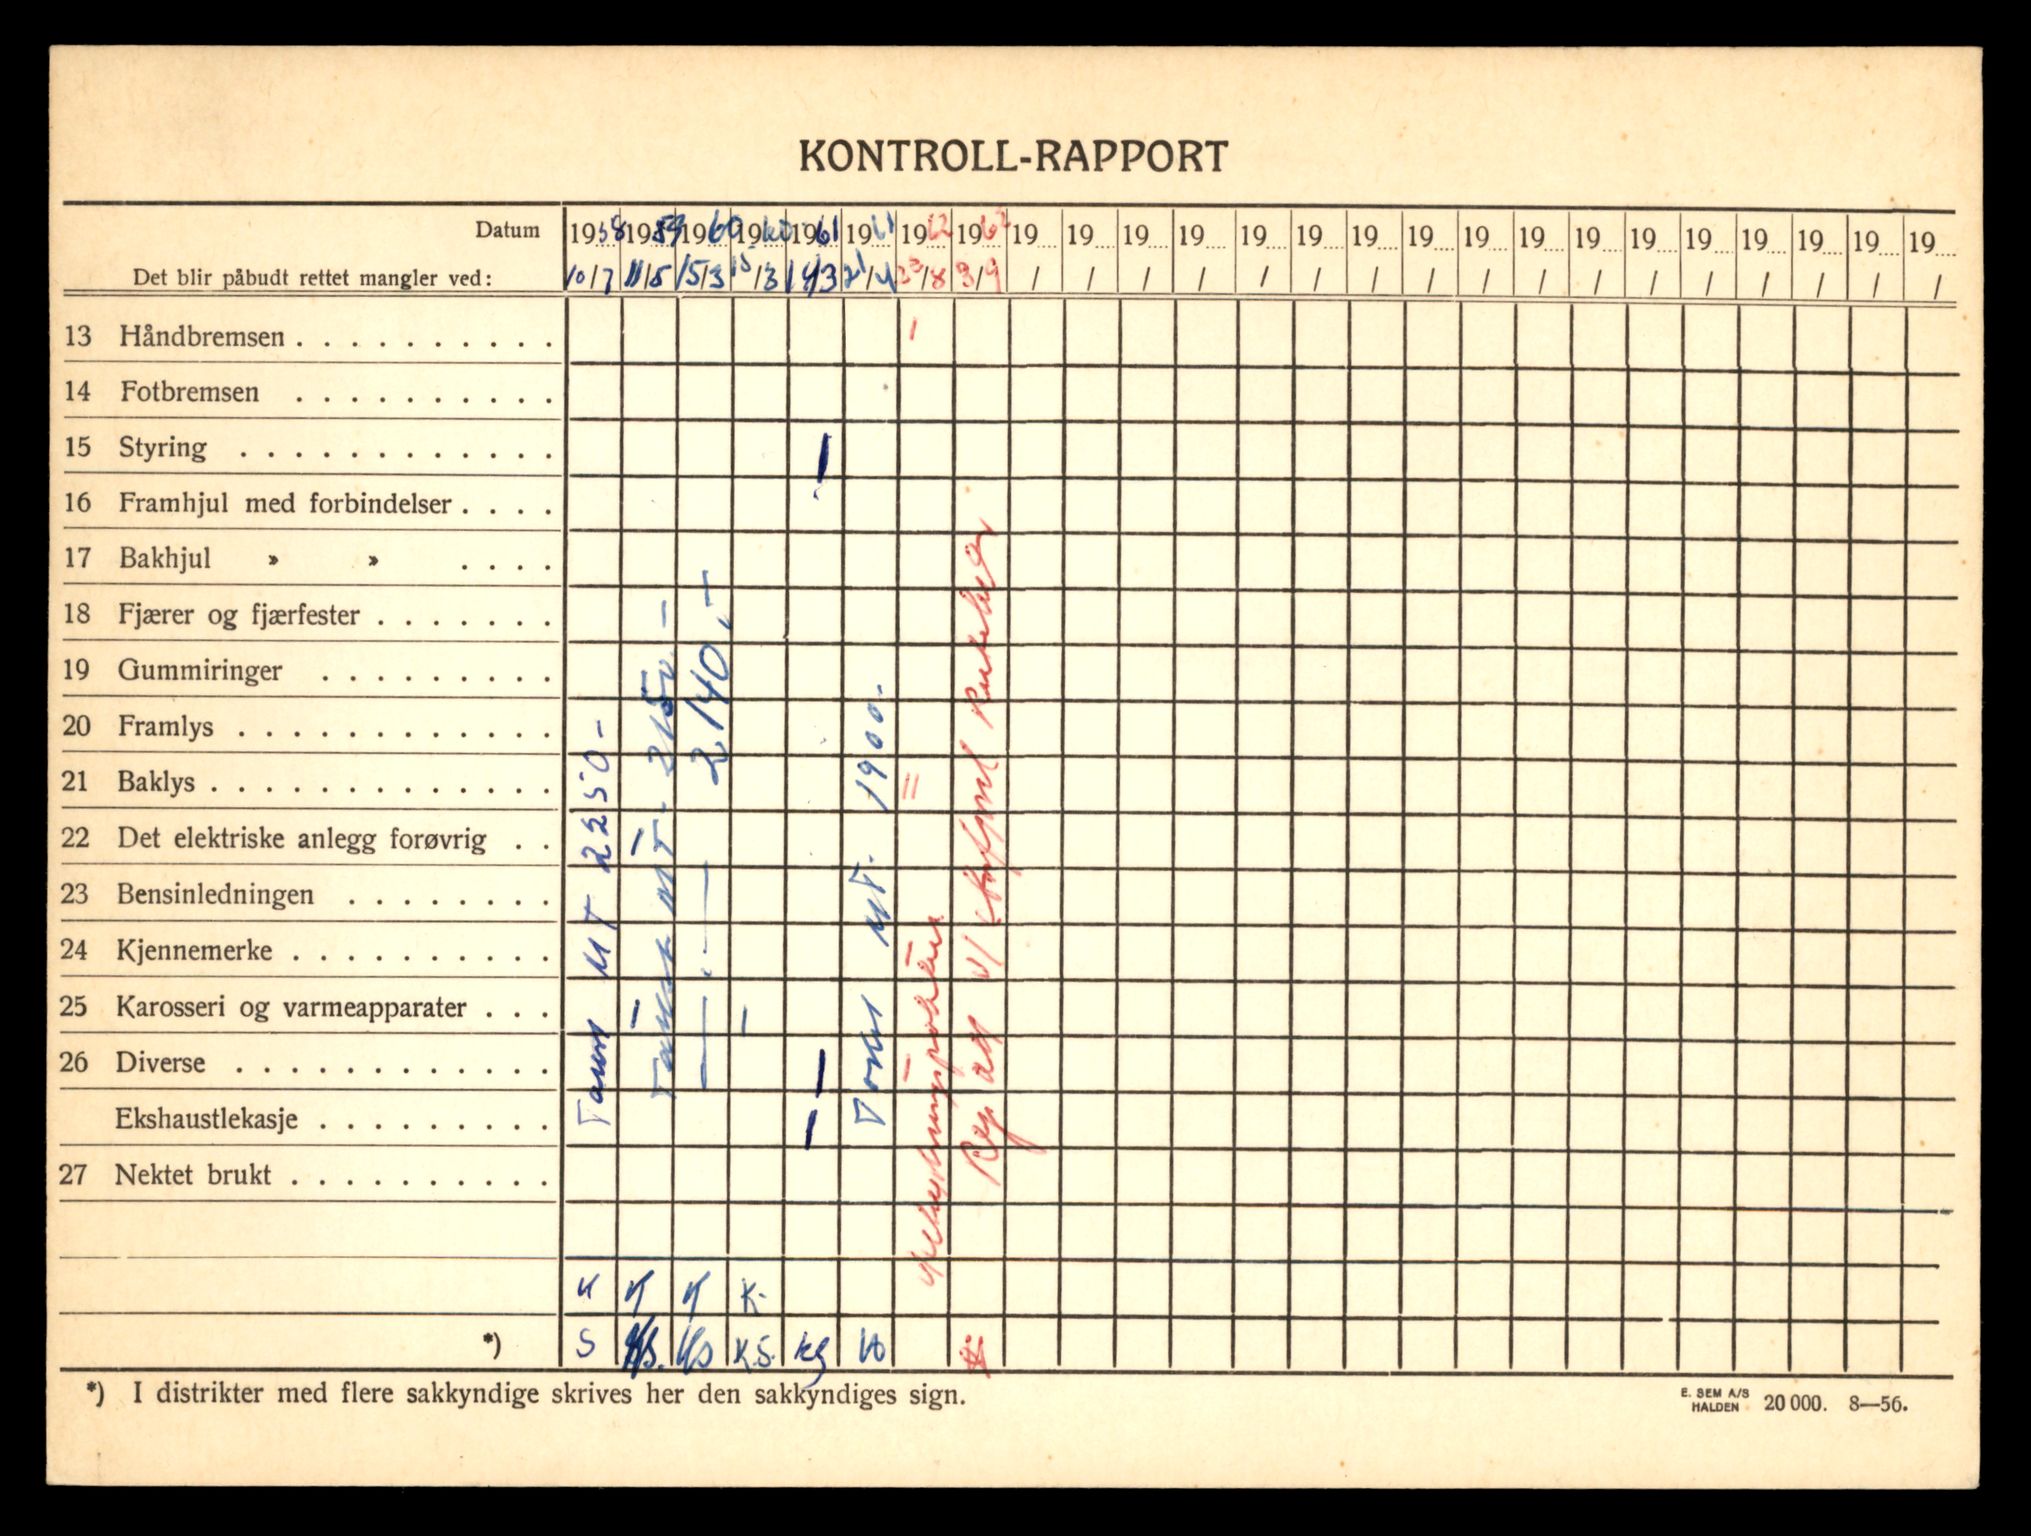 KONTROLL-RAPPORT
Datum 1958 1959 1960 1960 1961 1961 1962 1962 19 19 19 19 19 19 19 19 19 19 19 19 19 19 19 19 19
Det blir påbudt rettet mangler ved: 10/7 11/5 15/3 15/3 14/3 21/4 23/8 3/9 / / / / / / / / / / / / / / / / /
13 Håndbremsen . . . . . . . . . . I
14 Fotbremsen . . . . . . . . . .
15 Styring . . . . . . . . . . . . I
16 Framhjul med forbindelser . . . .
17 Bakhjul » » . . . .
18 Fjærer og fjærfester . . . . . . .
19 Gummiringer . . . . . . . . .
20 Framlys . . . . . . . . . . . .
21 Baklys . . . . . . . . . . . . . II
22 Det elektriske anlegg forøvrig . . I
23 Bensinledningen . . . . . . . .
24 Kjennemerke . . . . . . . . . .
25 Karosseri og varmeapparater . . . I I
26 Diverse . . . . . . . . . . . . I I
Ekshaustlekasje . . . . . . . . . I
27 Nektet brukt . . . . . . . . . .
2250-
2150.-
2140,-
1900.-
Rep
K K K K.
*) S K.S.
*) I distrikter med flere sakkyndige skrives her den sakkyndiges sign.
E. SEM A/S
HALDEN 20 000. 8—56.